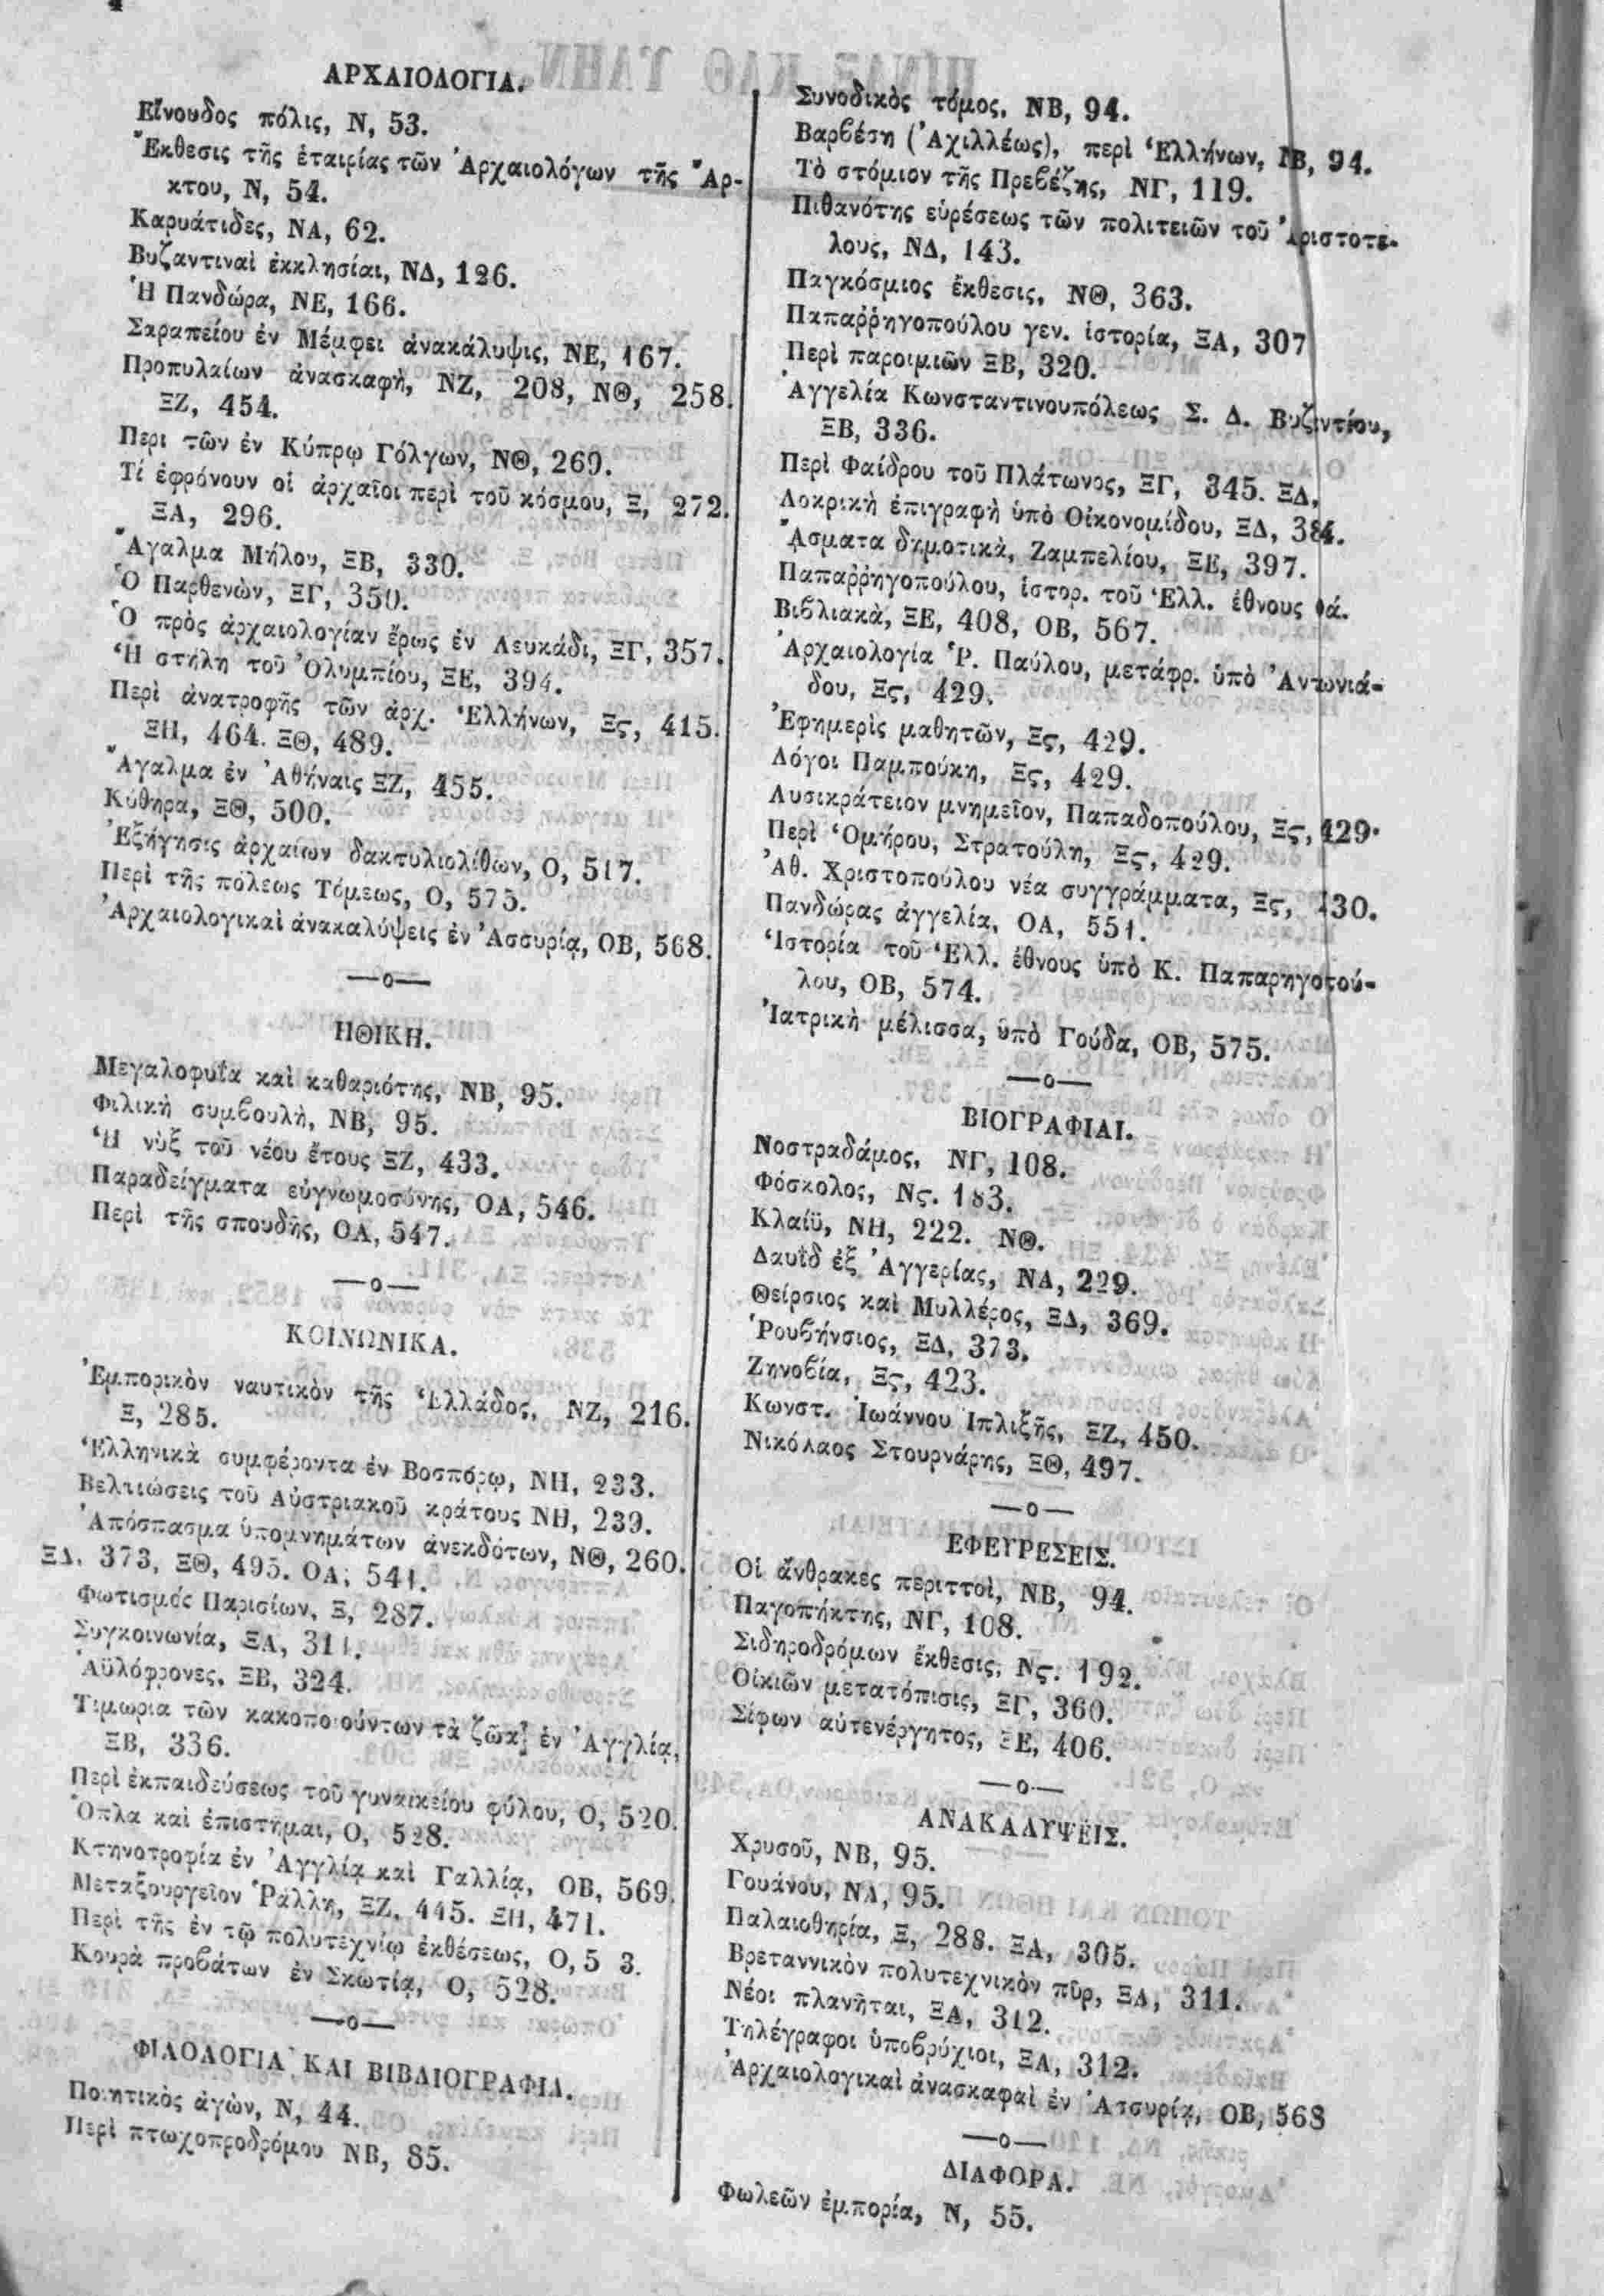 ΑΡΧΑΙΟΛΟΓΙΑ.
Εἴνουδος πόλις, Ν, 53.
Ἔκθεσις τῆς ἑταιρίας τῶν Ἀρχαιολόγων τῆς Ἄρ-
κτου, Ν, 54.
Καρυάτιδες, ΝΑ, 62.
Βυζαντιναὶ ἐκκλησίαι, ΝΔ, 126.
Ἡ Πανδώρα, ΝΕ, 166.
Σαραπείου ἐν Μέμφει ἀνακάλυψις, ΝΕ, 167.
Προπυλαίων ἀνασκαφὴ, ΝΖ, 208, ΝΘ, 258.
ΞΖ, 454.
Περι τῶν ἐν Κύπρῳ Γόλγων, ΝΘ, 269.
Τί ἐφρόνουν οἱ ἀρχαῖοι περὶ τοῦ κόσμου, Ξ, 272.
ΞΑ, 296.
Ἄγαλμα Μήλου, ΞΒ, 330.
Ὁ Παρθενὼν, ΞΓ, 350.
Ὁ πρὸς ἀρχαιολογίαν ἔρως ἐν Λευκάδι, ΞΓ, 357.
Ἡ στήλη τοῦ Ὀλυμπίου, ΞΕ, 394.
Περὶ ἀνατροφῆς τῶν ἀρχ. Ἑλλήνων, Ξς, 415.
ΞΗ, 464. ΞΘ, 489.
Ἄγαλμα ἐν Ἀθήναις ΞΖ, 455.
Κύθηρα, ΞΘ, 500.
Ἐξήγησις ἀρχαίων δακτυλιολίθων, Ο, 517.
Περὶ τῆς πόλεως Τόμεως, Ο, 575.
Ἀρχαιολογικαὶ ἀνακαλύψεις ἐν Ἀσσυρίᾳ, ΟΒ, 568.
—ο—
ΗΘΙΚΗ.
Μεγαλοφυΐα καὶ καθαριότης, ΝΒ, 95.
Φιλικὴ συμβουλὴ, ΝΒ, 95.
Ἡ νὺξ τοῦ νέου ἔτους ΞΖ, 433.
Παραδείγματα εὐγνωμοσύνης, ΟΑ, 546.
Περὶ τῆς σπουδῆς, ΟΑ, 547.
—ο—
ΚΟΙΝΩΝΙΚΑ.
Ἐμπορικὸν ναυτικὸν τῆς Ἑλλάδος, ΝΖ, 216.
Ξ, 285.
Ἑλληνικὰ συμφέροντα ἐν Βοσπόρῳ, ΝΗ, 233.
Βελτιώσεις τοῦ Αὐστριακοῦ κράτους ΝΗ, 239.
Ἀπόσπασμα ὑπομνημάτων ἀνεκδότων, ΝΘ, 260.
ΞΔ, 373, ΞΘ, 495. ΟΑ, 541.
Φωτισμὸς Παρισίων, Ξ, 287.
Συγκοινωνία, ΞΑ, 311.
Ἀϋλόφρονες, ΞΒ, 324.
Τιμωρια τῶν κακοποιούντων τὰ ζῶα ἐν Ἀγγλίᾳ,
ΞΒ, 336.
Περὶ ἐκπαιδεύσεως τοῦ γυναικείου φύλου, Ο, 520.
Ὅπλα καὶ ἐπιστῆμαι, Ο, 528.
Κτηνοτροφία ἐν Ἀγγλίᾳ καὶ Γαλλίᾳ, ΟΒ, 569.
Μεταξουργεῖον Ῥάλλη, ΞΖ, 445. ΞΗ, 471.
Περὶ τῆς ἐν τῷ πολυτεχνίῳ ἐκθέσεως, Ο, 5 3.
Κουρὰ προβάτων ἐν Σκωτίᾳ, Ο, 528.
—ο—
ΦΙΛΟΛΟΓΙΑ ΚΑΙ ΒΙΒΛΙΟΓΡΑΦΙΑ.
Ποιητικὸς ἀγὼν, Ν, 44.
Περὶ πτωχοπροδρόμου ΝΒ, 85.
Συνοδικὸς τόμος, ΝΒ, 94.
Βαρβέση (Ἀχιλλέως), περὶ Ἑλλήνων, ΝΒ, 94.
Τὸ στόμιον τῆς Πρεβέζης, ΝΓ, 119.
Πιθανότης εὑρέσεως τῶν πολιτειῶν τοῦ Ἀριστοτέ-
λους, ΝΔ, 143.
Παγκόσμιος ἔκθεσις, ΝΘ, 363.
Παπαῤῥηγοπούλου γεν. ἱστορία, ΞΑ, 307
Περὶ παροιμιῶν ΞΒ, 320.
Ἀγγελία Κωνσταντινουπόλεως Σ. Δ. Βυζαντίου,
ΞΒ, 336.
Περὶ Φαίδρου τοῦ Πλάτωνος, ΞΓ, 345. ΞΔ,
Λοκρικὴ ἐπιγραφὴ ὑπὸ Οἰκονομίδου, ΞΔ, 384.
Ἄσματα δημοτικὰ, Ζαμπελίου, ΞΕ, 397.
Παπαῤῥηγοπούλου, ἱστορ. τοῦ Ἑλλ. ἔθνους φά.
Βιβλιακὰ, ΞΕ, 408, ΟΒ, 567.
Ἀρχαιολογία Ῥ. Παύλου, μετάφρ. ὑπὸ Ἀντωνιά-
δου, Ξς, 429.
Ἐφημερὶς μαθητῶν, Ξς, 429.
Λόγοι Παμπούκη, Ξς, 429.
Λυσικράτειον μνημεῖον, Παπαδοπούλου, Ξς, 429.
Περὶ Ὁμήρου, Στρατούλη, Ξς, 429.
Ἀθ. Χριστοπούλου νέα συγγράμματα, Ξς, 430.
Πανδώρας ἀγγελία, ΟΑ, 551.
Ἱστορία τοῦ Ἑλλ. ἔθνους ὑπὸ Κ. Παπαρηγοπού-
λου, ΟΒ, 574.
Ἰατρικὴ μέλισσα, ὑπὸ Γούδα, ΟΒ, 575.
—ο—
ΒΙΟΓΡΑΦΙΑΙ.
Νοστραδάμος, ΝΓ, 108.
Φόσκολος, Νς. 183.
Κλαίϋ, ΝΗ, 222. ΝΘ.
Δαυῒδ ἐξ Ἀγγερίας, ΝΑ, 229.
Θείρσιος καὶ Μυλλέρος, ΞΔ, 369.
Ῥουβήνσιος, ΞΔ, 373.
Ζηνοβία, Ξς, 423.
Κωνστ. Ἰωάννου Ἰπλιξῆς, ΞΖ, 450.
Νικόλαος Στουρνάρης, ΞΘ, 497.
—ο—
ΕΦΕΥΡΕΣΕΙΣ.
Οἱ ἄνθρακες περιττοὶ, ΝΒ, 94.
Παγοπήκτης, ΝΓ, 108.
Σιδηροδρόμων ἔκθεσις, Νς. 192.
Οἰκιῶν μετατόπισις, ΞΓ, 360.
Σίφων αὐτενέργητος, ΞΕ, 406.
—ο—
ΑΝΑΚΑΛΥΨΕΙΣ.
Χρυσοῦ, ΝΒ, 95.
Γουάνου, ΝΔ, 95.
Παλαιοθηρία, Ξ, 288. ΞΑ, 305.
Βρεταννικὸν πολυτεχνικὸν πῦρ, ΞΑ, 311.
Νέοι πλανῆται, ΞΑ, 312.
Τηλέγραφοι ὑποβρύχιοι, ΞΑ, 312.
Ἀρχαιολογικαὶ ἀνασκαφαὶ ἐν Ἀσσυρίᾳ, ΟΒ, 568
—ο—
ΔΙΑΦΟΡΑ.
Φωλεῶν ἐμπορία, Ν, 55.